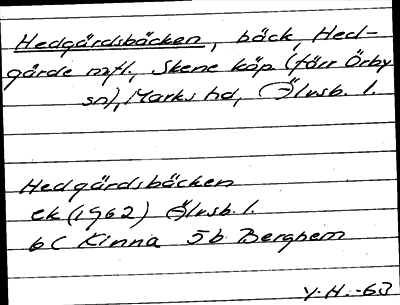 Hedgärdsbäcken, bäck, Hed-
gärde mfl., Skene köp. (förr Örby
sn), Marks hd, Älvsb. l.
Hedgärdsbäcken
ek (1962) Älvsb. l.
6C Kinna 5b Berghem
Y.H.-63